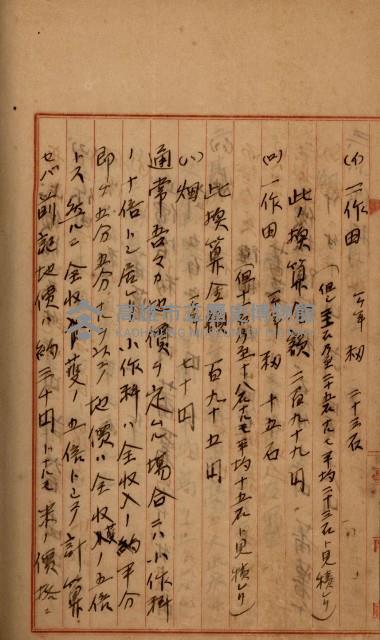 (イ) 二作田 一ケ年籾 二十三石
(但シ至二十五石ナルモ平均二十三石ト見積レリ)
此ノ換算額 二百九十九円
(ロ) 一作田 一ケ年籾 十五石
(但十二石乃至十八石ナルモ平均十五石ト見積レリ)
此換算金額 百九十五円
(ハ) 畑 七十円
通常吾々カ地價ヲ定ムル場合ニハ小作料
ノ十倍トシ居レリ小作料ハ全収入ノ約半分
即チ五分五分ナルヲ以テ地價ハ全収穫ノ五倍
トス然ルニ全収穫ノ五倍トシテ計算
セバ前記地價ハ約三千円トナルモ米ノ價格ニ
高雄市立歷史博物館
KAOHSIUNG MUSEUM OF HISTORY